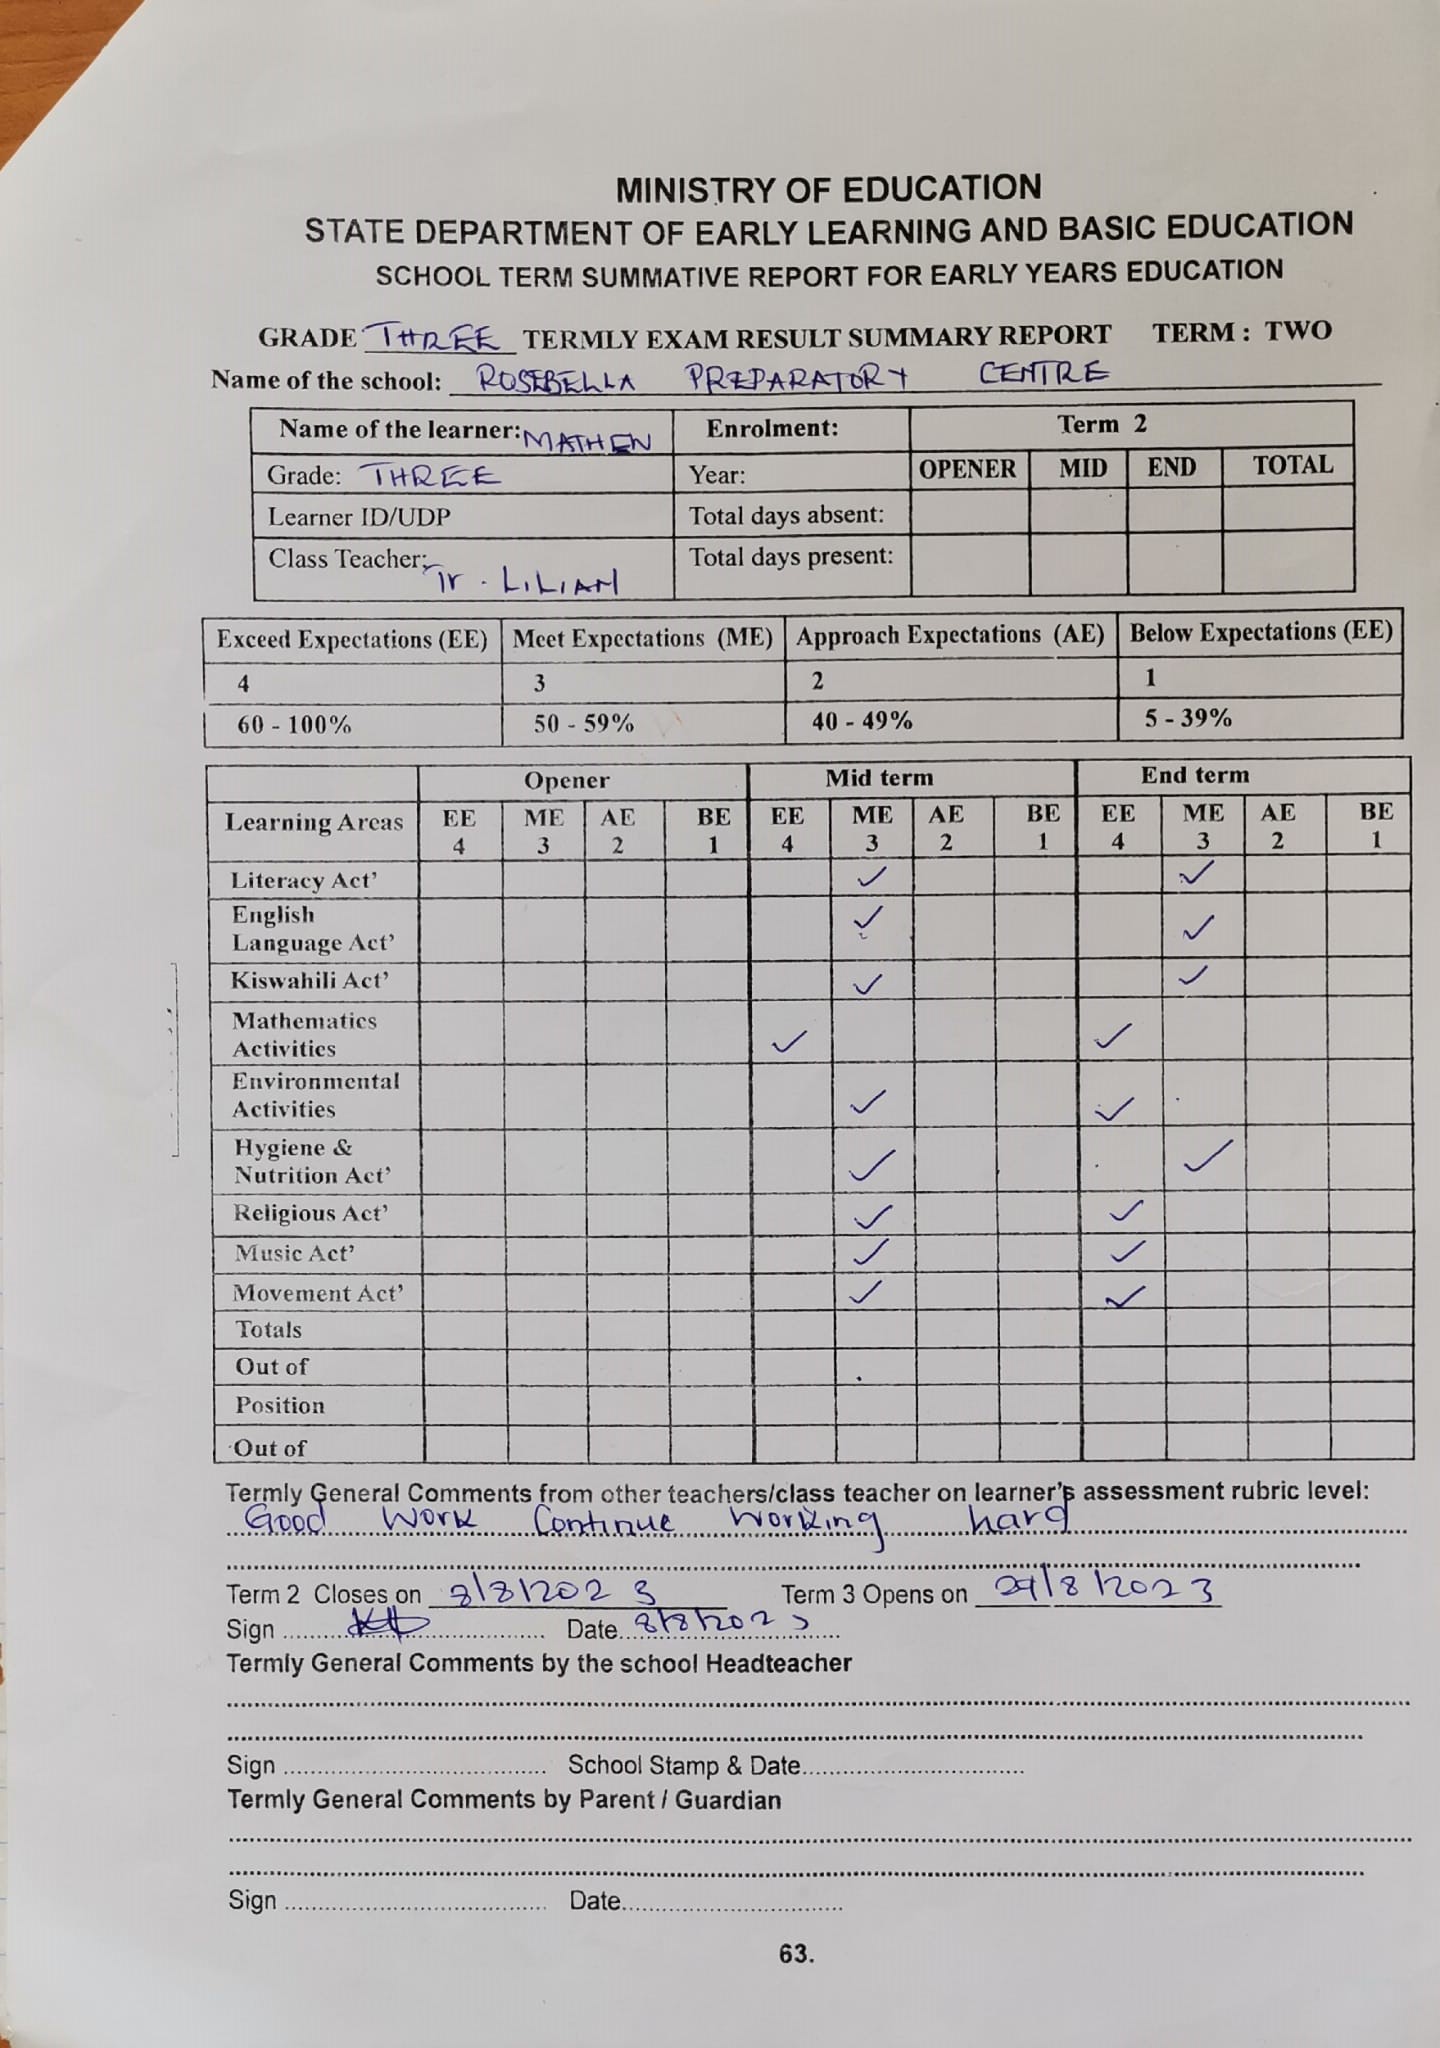 MINISTRY OF EDUCATION
STATE DEPARTMENT OF EARLY LEARNING AND BASIC EDUCATION
SCHOOL TERM SUMMATIVE REPORT FOR EARLY YEARS EDUCATION
GRADE THREE TERMLY EXAM RESULT SUMMARY REPORT TERM : TWO
Name of the school: ROSEBELLA PREPARATORY CENTRE
Name of the learner: MATHEN Enrolment: Term 2
Grade: THREE Year: OPENER MID END TOTAL
Learner ID/UDP Total days absent:
Class Teacher: Tr. LILIAN Total days present:
Exceed Expectations (EE) Meet Expectations (ME) Approach Expectations (AE) Below Expectations (EE)
4 3 2 1
60 - 100% 50 - 59% 40 - 49% 5 - 39%
Opener Mid term End term
Learning Areas EE 4 ME 3 AE 2 BE 1 EE 4 ME 3 AE 2 BE 1 EE 4 ME 3 AE 2 BE 1
Literacy Act' ✓ ✓
English
Language Act' ✓ ✓
Kiswahili Act' ✓ ✓
Mathematics
Activities ✓ ✓
Environmental
Activities ✓ ✓
Hygiene &
Nutrition Act' ✓ ✓
Religious Act' ✓ ✓
Music Act' ✓ ✓
Movement Act' ✓ ✓
Totals
Out of
Position
Out of
Termly General Comments from other teachers/class teacher on learner's assessment rubric level:
Good Work Continue Working hard
Term 2 Closes on 8/8/2023 Term 3 Opens on /8/2023
Sign Date 8/8/2023
Termly General Comments by the school Headteacher
Sign School Stamp & Date
Termly General Comments by Parent / Guardian
Sign Date
63.